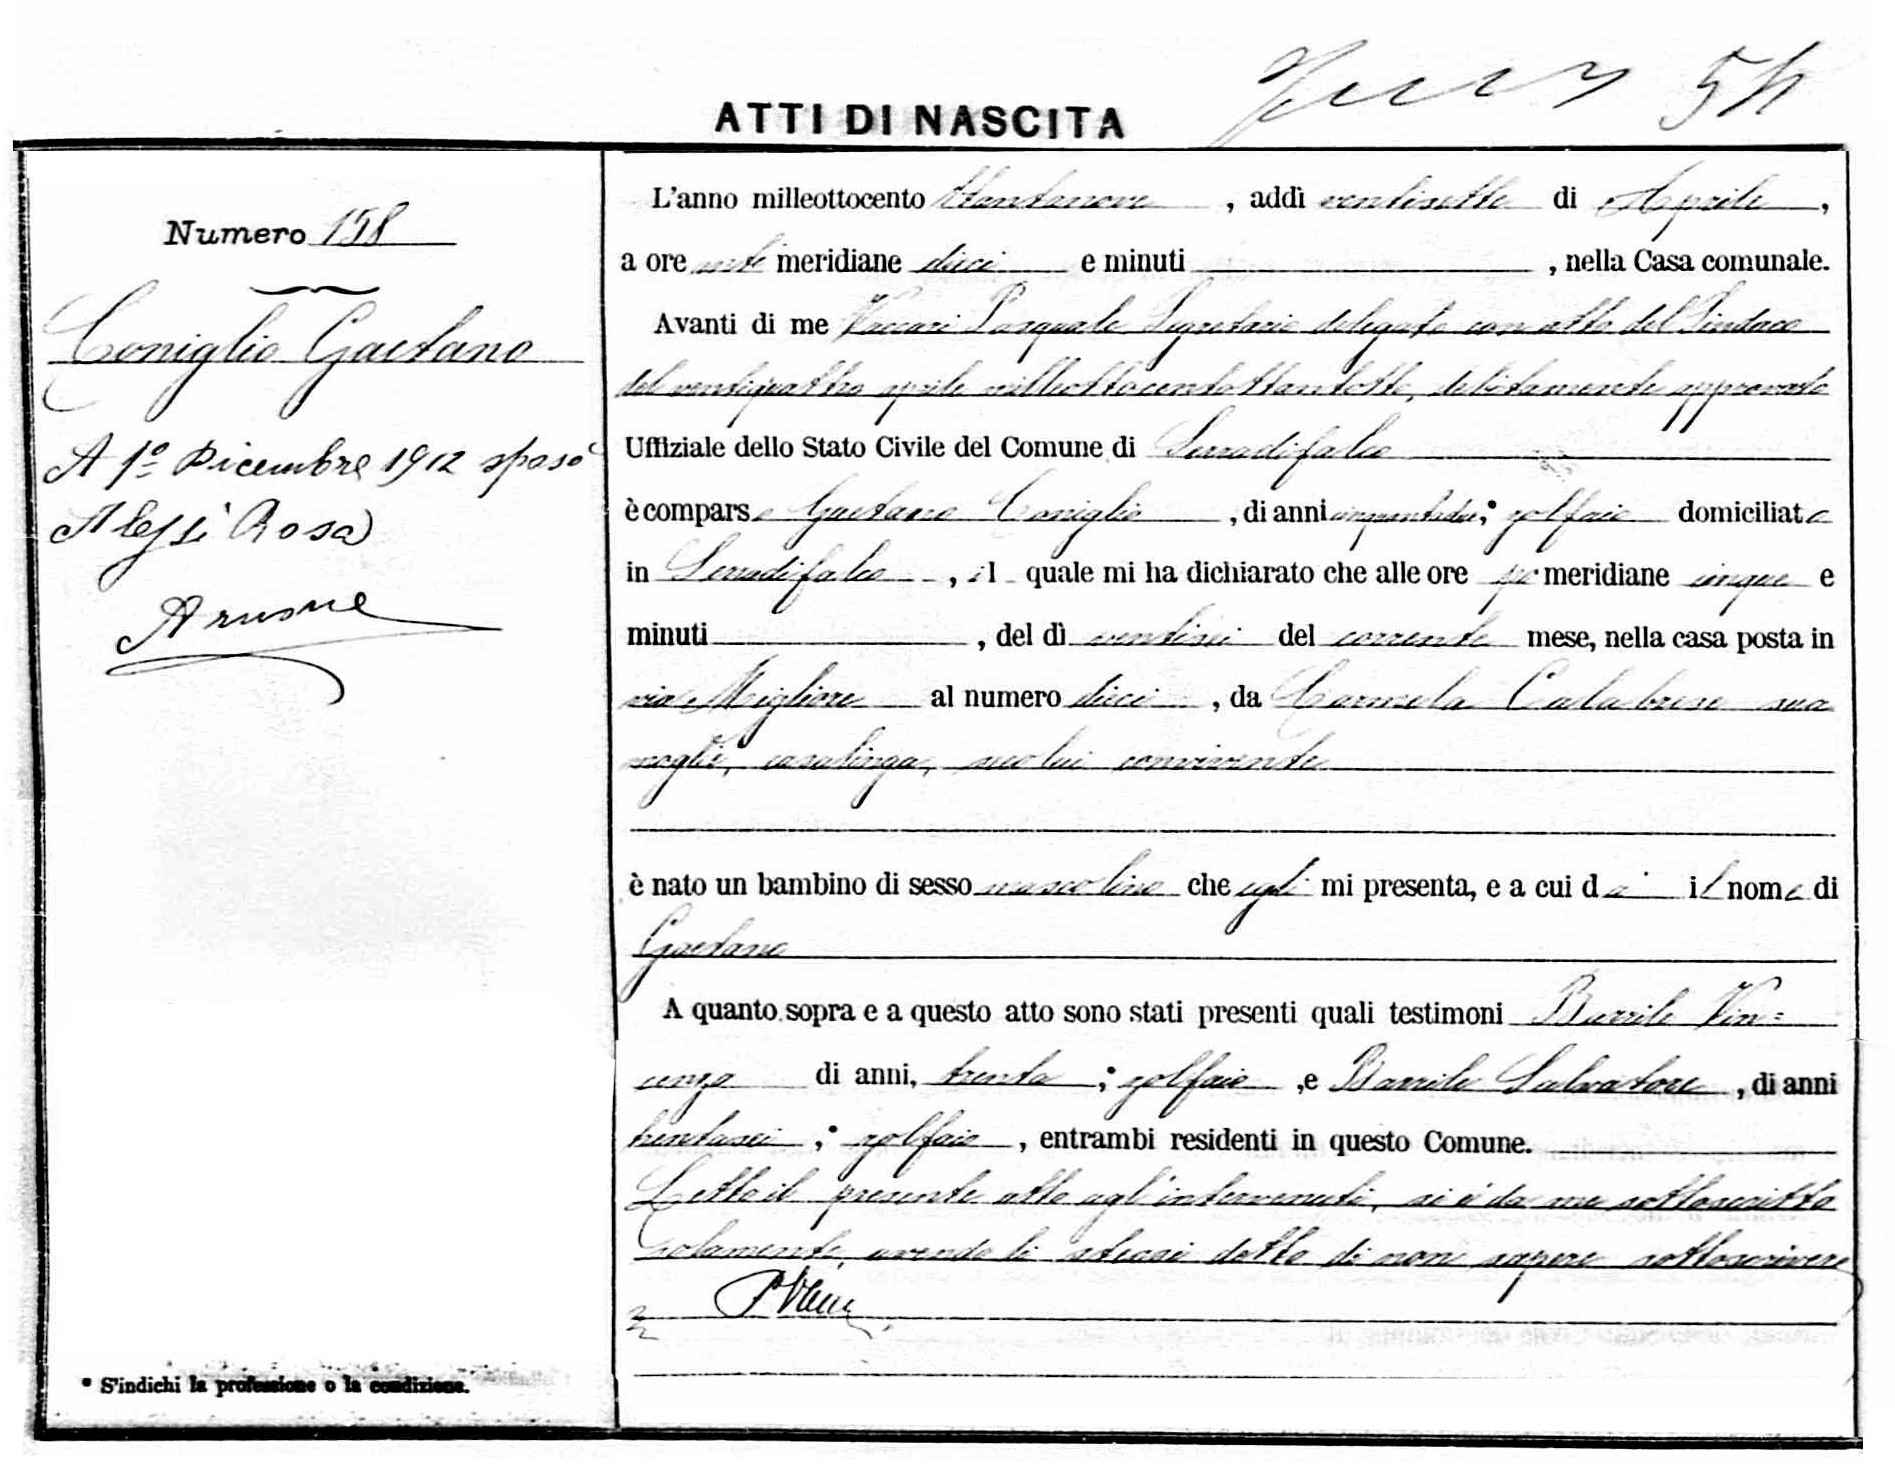 54
ATTI DI NASCITA
Numero 158
Coniglio Gaetano
A 1º Dicembre 1912 sposò
Alessi Rosa
* S'indichi la professione o la condizione.
L'anno milleottocento ottantanove, addì ventisette di Aprile,
a ore ante meridiane dieci e minuti , nella Casa comunale.
Avanti di me Vaccari Pasquale Segretario delegato con atto del Sindaco
del ventiquattro aprile milleottocentottantotto, debitamente approvato
Uffiziale dello Stato Civile del Comune di Serradifalco
è comparso Gaetano Coniglio, di anni cinquantadue,* zolfaio domiciliato
in Serradifalco, il quale mi ha dichiarato che alle ore po meridiane cinque e
minuti , del dì ventisei del corrente mese, nella casa posta in
via Migliore al numero dieci, da Carmela Calabrese sua
moglie, casalinga, seco lui convivente
è nato un bambino di sesso mascolino che egli mi presenta, e a cui dà il nome di
Gaetano
A quanto sopra e a questo atto sono stati presenti quali testimoni Barrile Vin=
cenzo di anni, trenta,* zolfaio, e Barrile Salvatore, di anni
trentasei,* zolfaio, entrambi residenti in questo Comune.
Letto il presente atto agl'intervenuti, si è da me sottoscritto
solamente, avendo li stessi detto di non sapere sottoscrivere